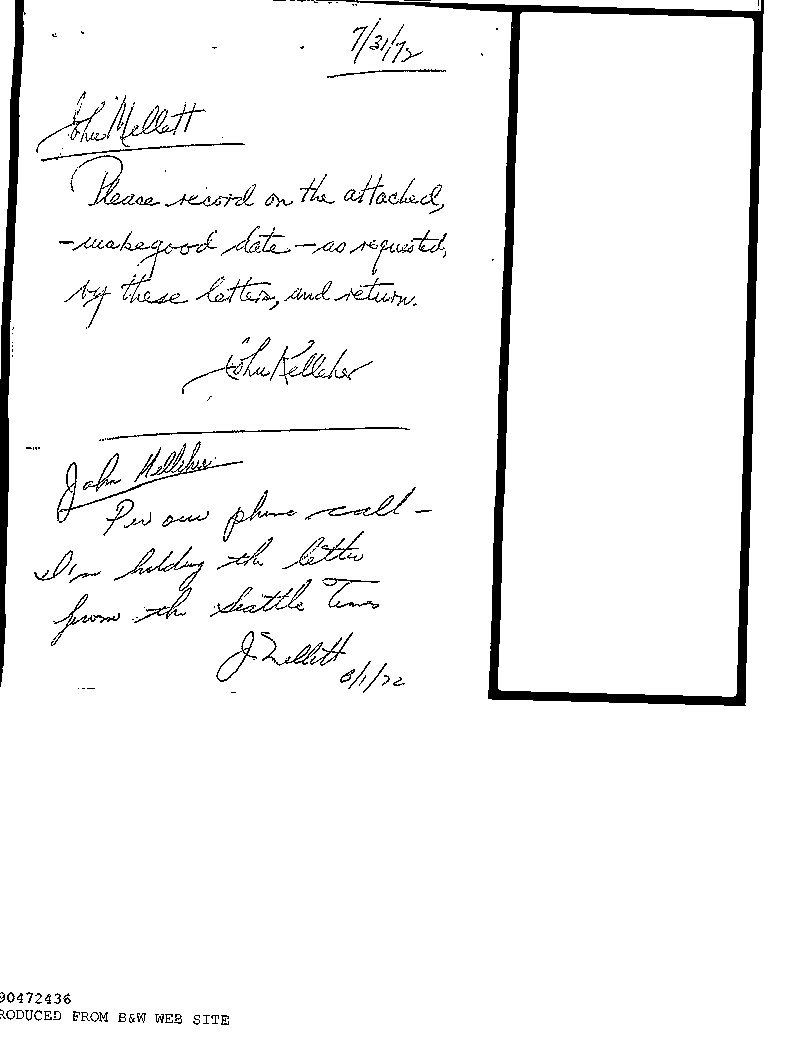 7/31/72
John Mellett
Please record on the attached,
-makegood date - as requested,
by these letters, and return.
John Kelleher
John Kelleher
Per our phone call -
I'm holding the letter
from the Seattle Times
J. Mellett
8/1/72
90472436
RODUCED FROM B&W WEB SITE